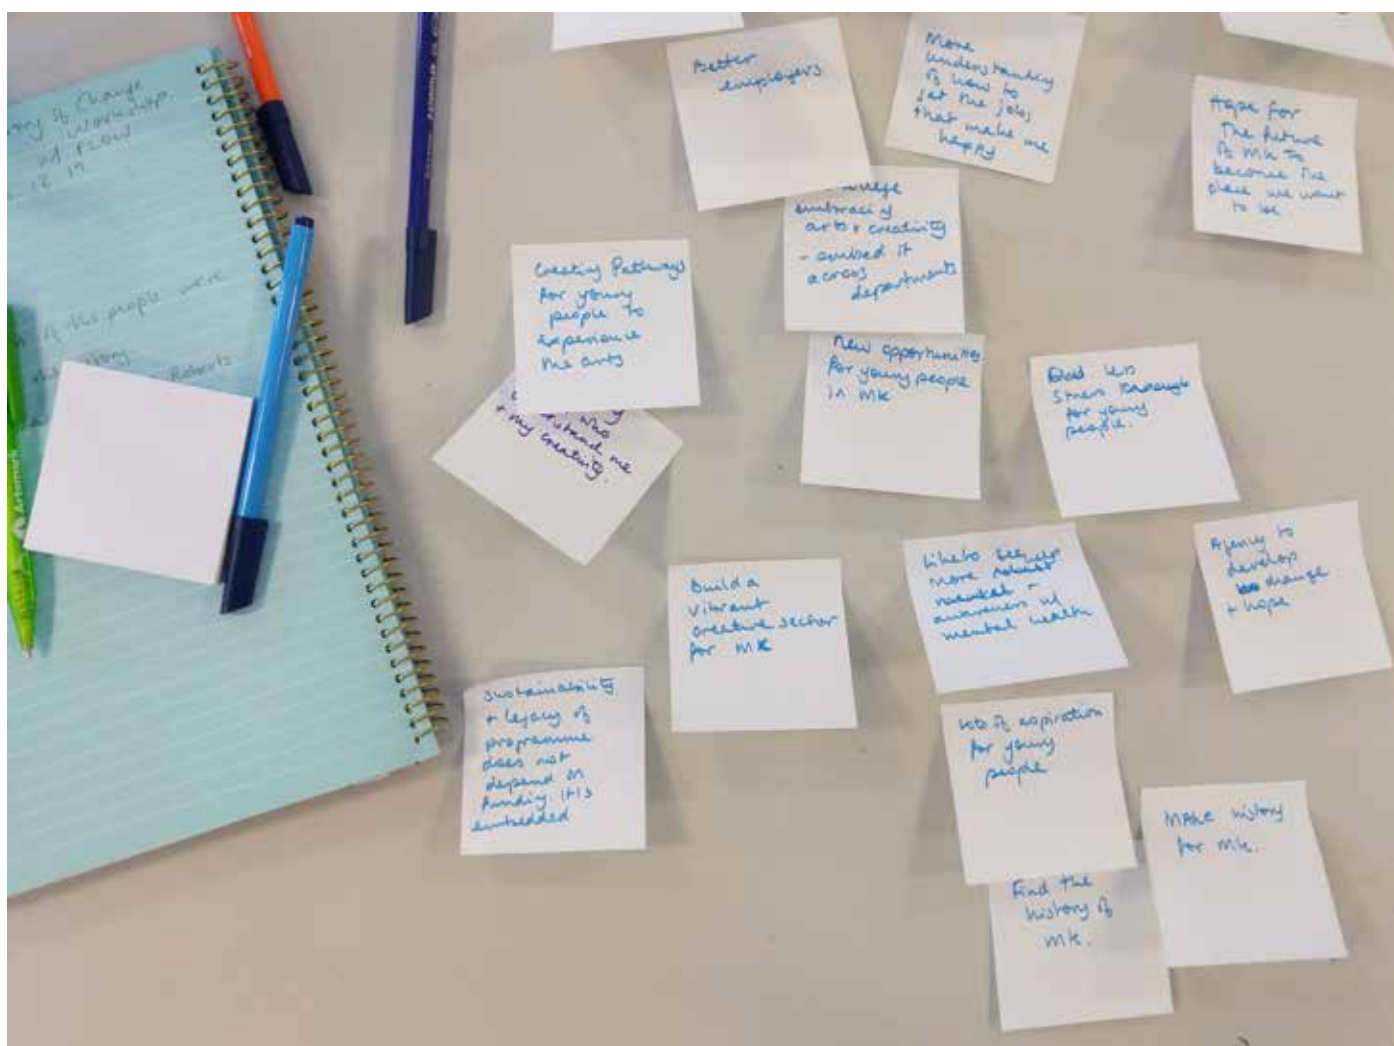 of Change
Workshop
w/ FLOW
12 17
of the people were
Roberts
Artsmark
Better
employers
More
understanding
of how to
get the jobs
that make me
happy
Hope for
the future
of MK to
become the
place we want
to be
embracing
arts + creativity
- embed it
across
departments
Creating Pathways
for young
people to
experience
the arts
who
me
+ my creativity.
New opportunities
for young people
in MK
less
stress
for young
people.
Like to see
more
awareness of
mental health
Agency to
develop
change
+ hope
Build a
vibrant
creative sector
for MK
Sustainability
+ legacy of
programme
does not
depend on
funding it is
embedded
lots of aspiration
for young
people
Make history
for MK.
Find the
history of
MK.